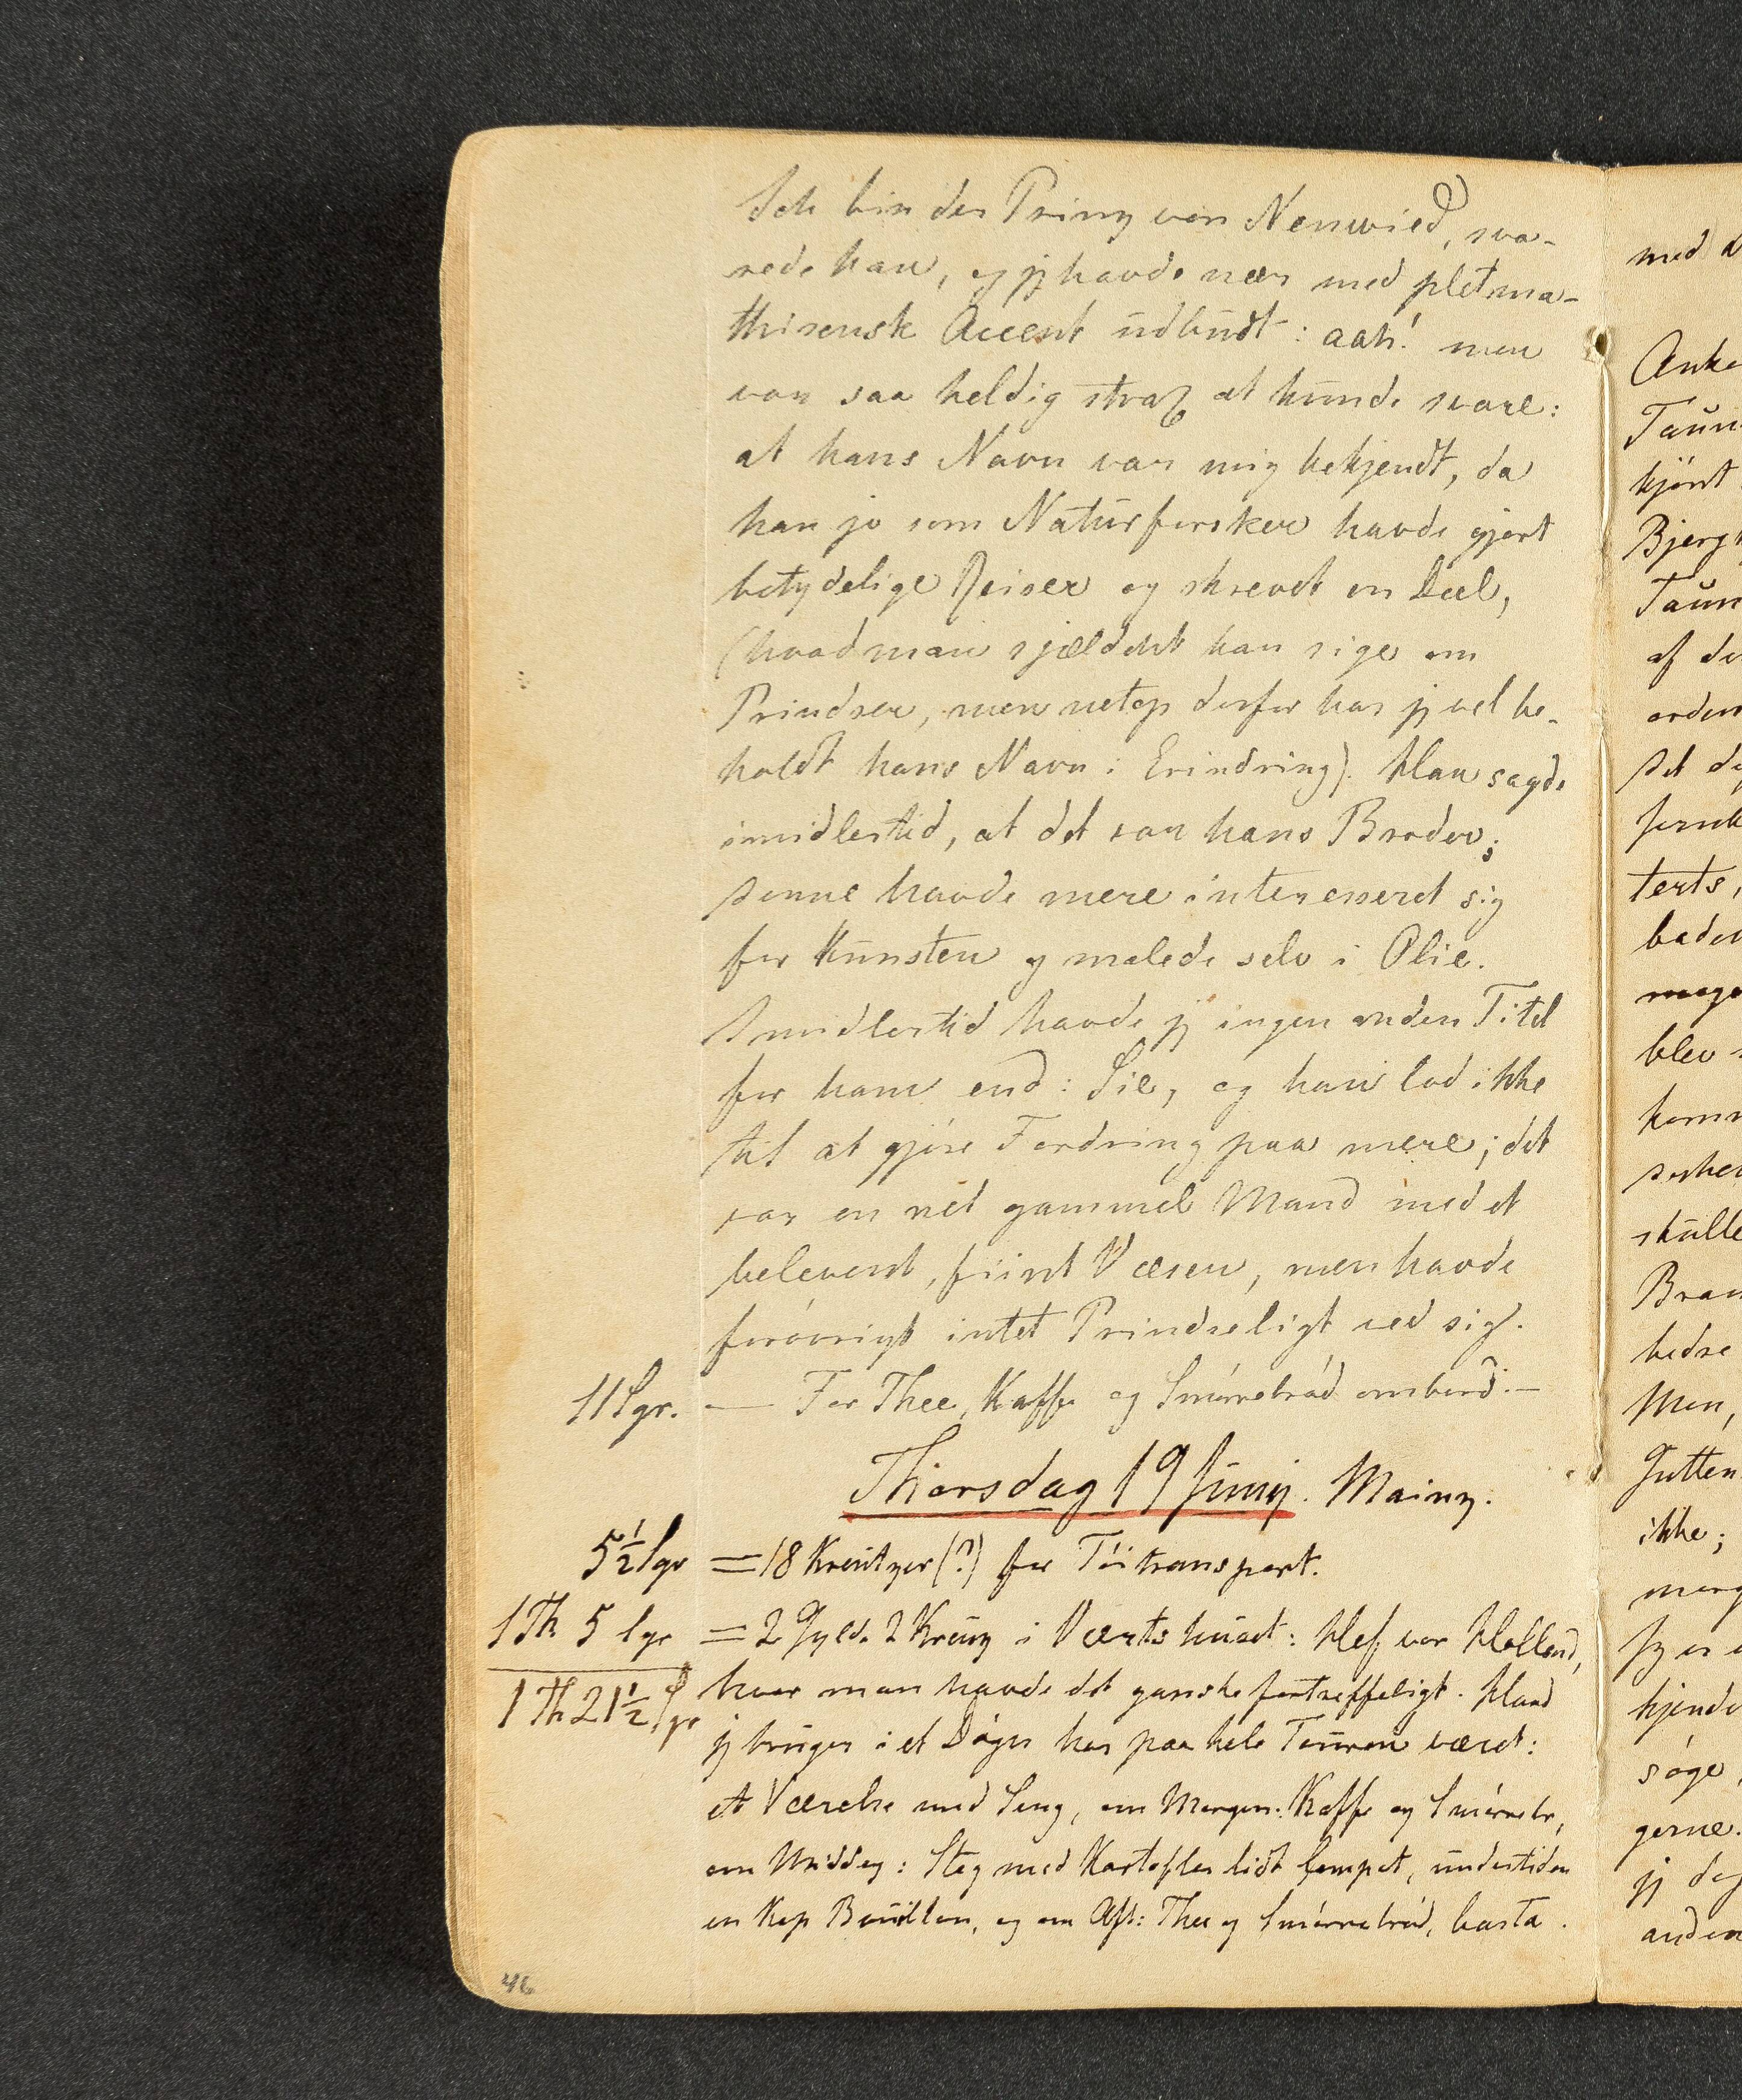 Ich bin der Prinz von Neuwied, sva-
rede han, og jeg havde nær med pletma-
thisensk Accent udbrudt: aah! men
var saa heldig strax at kunde svare:
at hans Navn var mig bekjendt, da
han jo som Naturforsker havde gjort
betydelige Reiser og skrevet en Deel,
(hvad man sjældent kan sige om
Prindser, men netop derfor har jeg vel be-
holdt hans Navn i Erindring). Han sagde
imidlertid, at det var hans Broder;
denne havde mere interesseret sig
for Kunsten og malede selv i Olie.
Imidlertid havde jeg ingen anden Titel
for ham end: Sie, og han lod ikke
til at gjöre Fordring paa mere; det
var en net gammel Mand med et
belevent, fiint Væsen, men havde
forövrigt intet Prindseligt ved sig.
11 Sgr. — For Thee, Kaffe og Smörrebröd ombord. —
Thorsdag 19 Junij. Mainz.
5½ Sgr = 18 Kreutzer (?) for Töitransport.
1 Th. 5 Sgr = 2 Gyld. 2 Kreuz i Værtshuset: Hof von Holland,
1 Th 21½ Sgr hvor man havde det ganske fortræffeligt. Hvad
jeg bruger i et Dögn har paa hele Touren været:
et Værelse med Seng, om Morgen: Kaffe og Smörrebr,
om Middag: Steg med Kartofler lidt Compot, undertiden
en Kop Bouillon, og om Aft: Thee og Smörrebröd, basta.
46
med
Bjerg
af de
terts,
blev
skulle
Bran
bedre
Men,
Gutten
ikke;
Jeg er
kjende
söge,
gerne.
jeg dog
anden